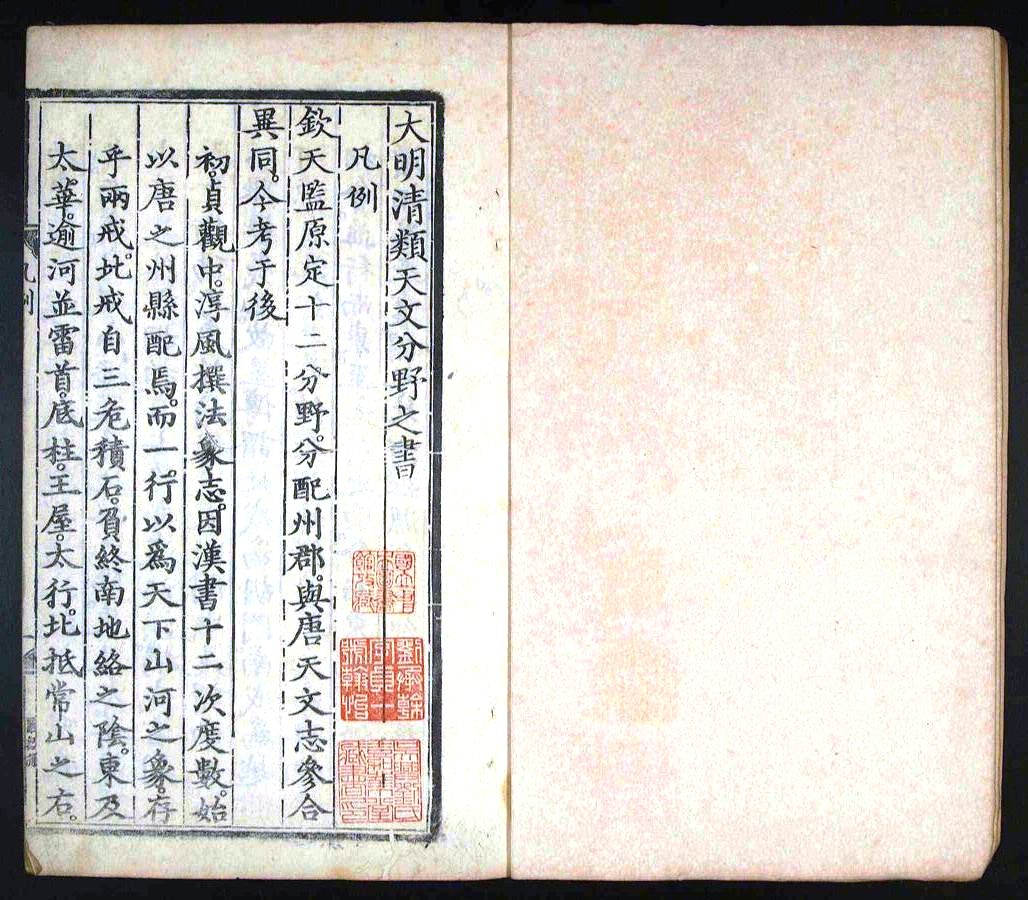 大明清類天文分野之書
凡例
欽天監原定十二分野。分配州郡。與唐天文志參合
異同。今考于後
初。貞觀中。淳風撰法象志。因漢書十二次度數。始
以唐之州縣配焉。而一行以爲天下山河之象。存
乎兩戒。北戒自三危積石。負終南地絡之陰。東及
太華。逾河並雷首。底柱。王屋。太行。北抵常山之右。
凡例
劉承幹
字貞一
號翰怡
吳興劉氏
嘉業堂
藏書印